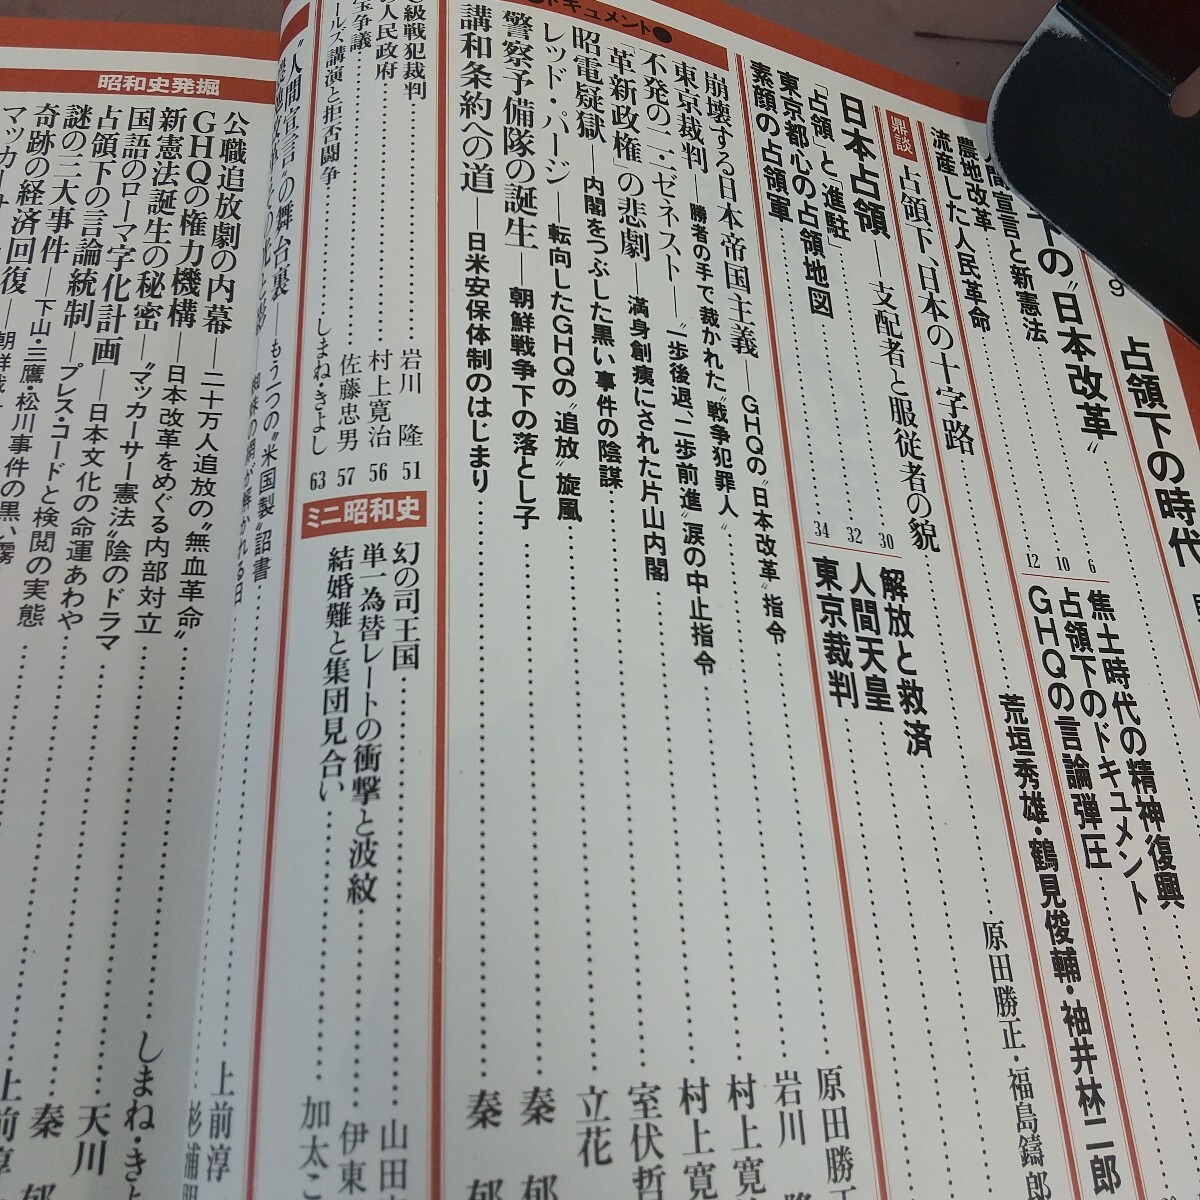 9 占領下の時代
下の〝日本改革〟
人間宣言と新憲法 6
農地改革 10
流産した人民革命 12
焦土時代の精神復興
占領下のドキュメント
GHQの言論弾圧
鼎談
占領下、日本の十字路 荒垣秀雄・鶴見俊輔・袖井林二郎
日本占領―支配者と服従者の貌 原田勝正・福島鑄郎
「占領」と「進駐」 30
東京都心の占領地図 32
素顔の占領軍 34
解放と救済
人間天皇
東京裁判
●ドキュメント●
崩壊する日本帝国主義―GHQの〝日本改革〟指令 原田勝
東京裁判―勝者の手で裁かれた〝戦争犯罪人〟 岩川 隆
不発の二・一ゼネスト―〝一歩後退、二歩前進〟涙の中止指令 村上寛
「革新政権」の悲劇―満身創痍にされた片山内閣 村上寛
昭電疑獄―内閣をつぶした黒い事件の陰謀 室伏哲
レッド・パージ―転向したGHQの〝追放〟旋風 立花
警察予備隊の誕生―朝鮮戦争下の落とし子 秦 郁
講和条約への道―日米安保体制のはじまり 秦 郁
級戦犯裁判 岩川 隆 51
人民政府 村上寛治 56
宝争議 佐藤忠男 57
ールズ講演と拒否闘争 しまね・きよし 63
ミニ昭和史
幻の司王国 山田
単一為替レートの衝撃と波紋 伊東
結婚難と集団見合い 加太こ
〝人間宣言〟の舞台裏―もう一つの〝米国製〟詔書 上前淳
杉浦
昭和史発掘
公職追放劇の内幕―二十万人追放の〝無血革命〟
GHQの権力機構―日本改革をめぐる内部対立
新憲法誕生の秘密―〝マッカーサー憲法〟陰のドラマ しまね・き
国語のローマ字化計画―日本文化の命運あわや
占領下の言論統制―プレス・コードと検閲の実態 天川
謎の三大事件―下山・三鷹・松川事件の黒い霧 秦 郁
奇跡の経済回復―朝鮮戦 上前淳
マッカーサー